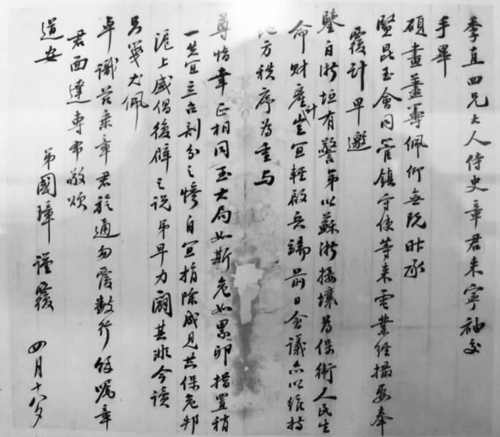 季直四兄大人侍史章君来寧袖交
手畢
碩畫藎籌佩仰無既昨承
賢昆玉會同管鎮守使等来電業經撮要奉
覆計早邀
鑒自浙垣有警弟以蘇浙接壤為保衛人民生
命財產計豈宜輕啟兵端前日會議亦以維持
地方秩序為重与
尊恉正相同至大局如斯危如累卵措置稍
一失宜立召剖分之慘自宜捐除成見共保危邦
滬上盛倡復辟之說弟早力闢其非今讀
另箋尤佩
卓識茲乘章君通勿覆數行餘囑章
君面達專布敬頌
道安
弟國璋謹覆
四月十八